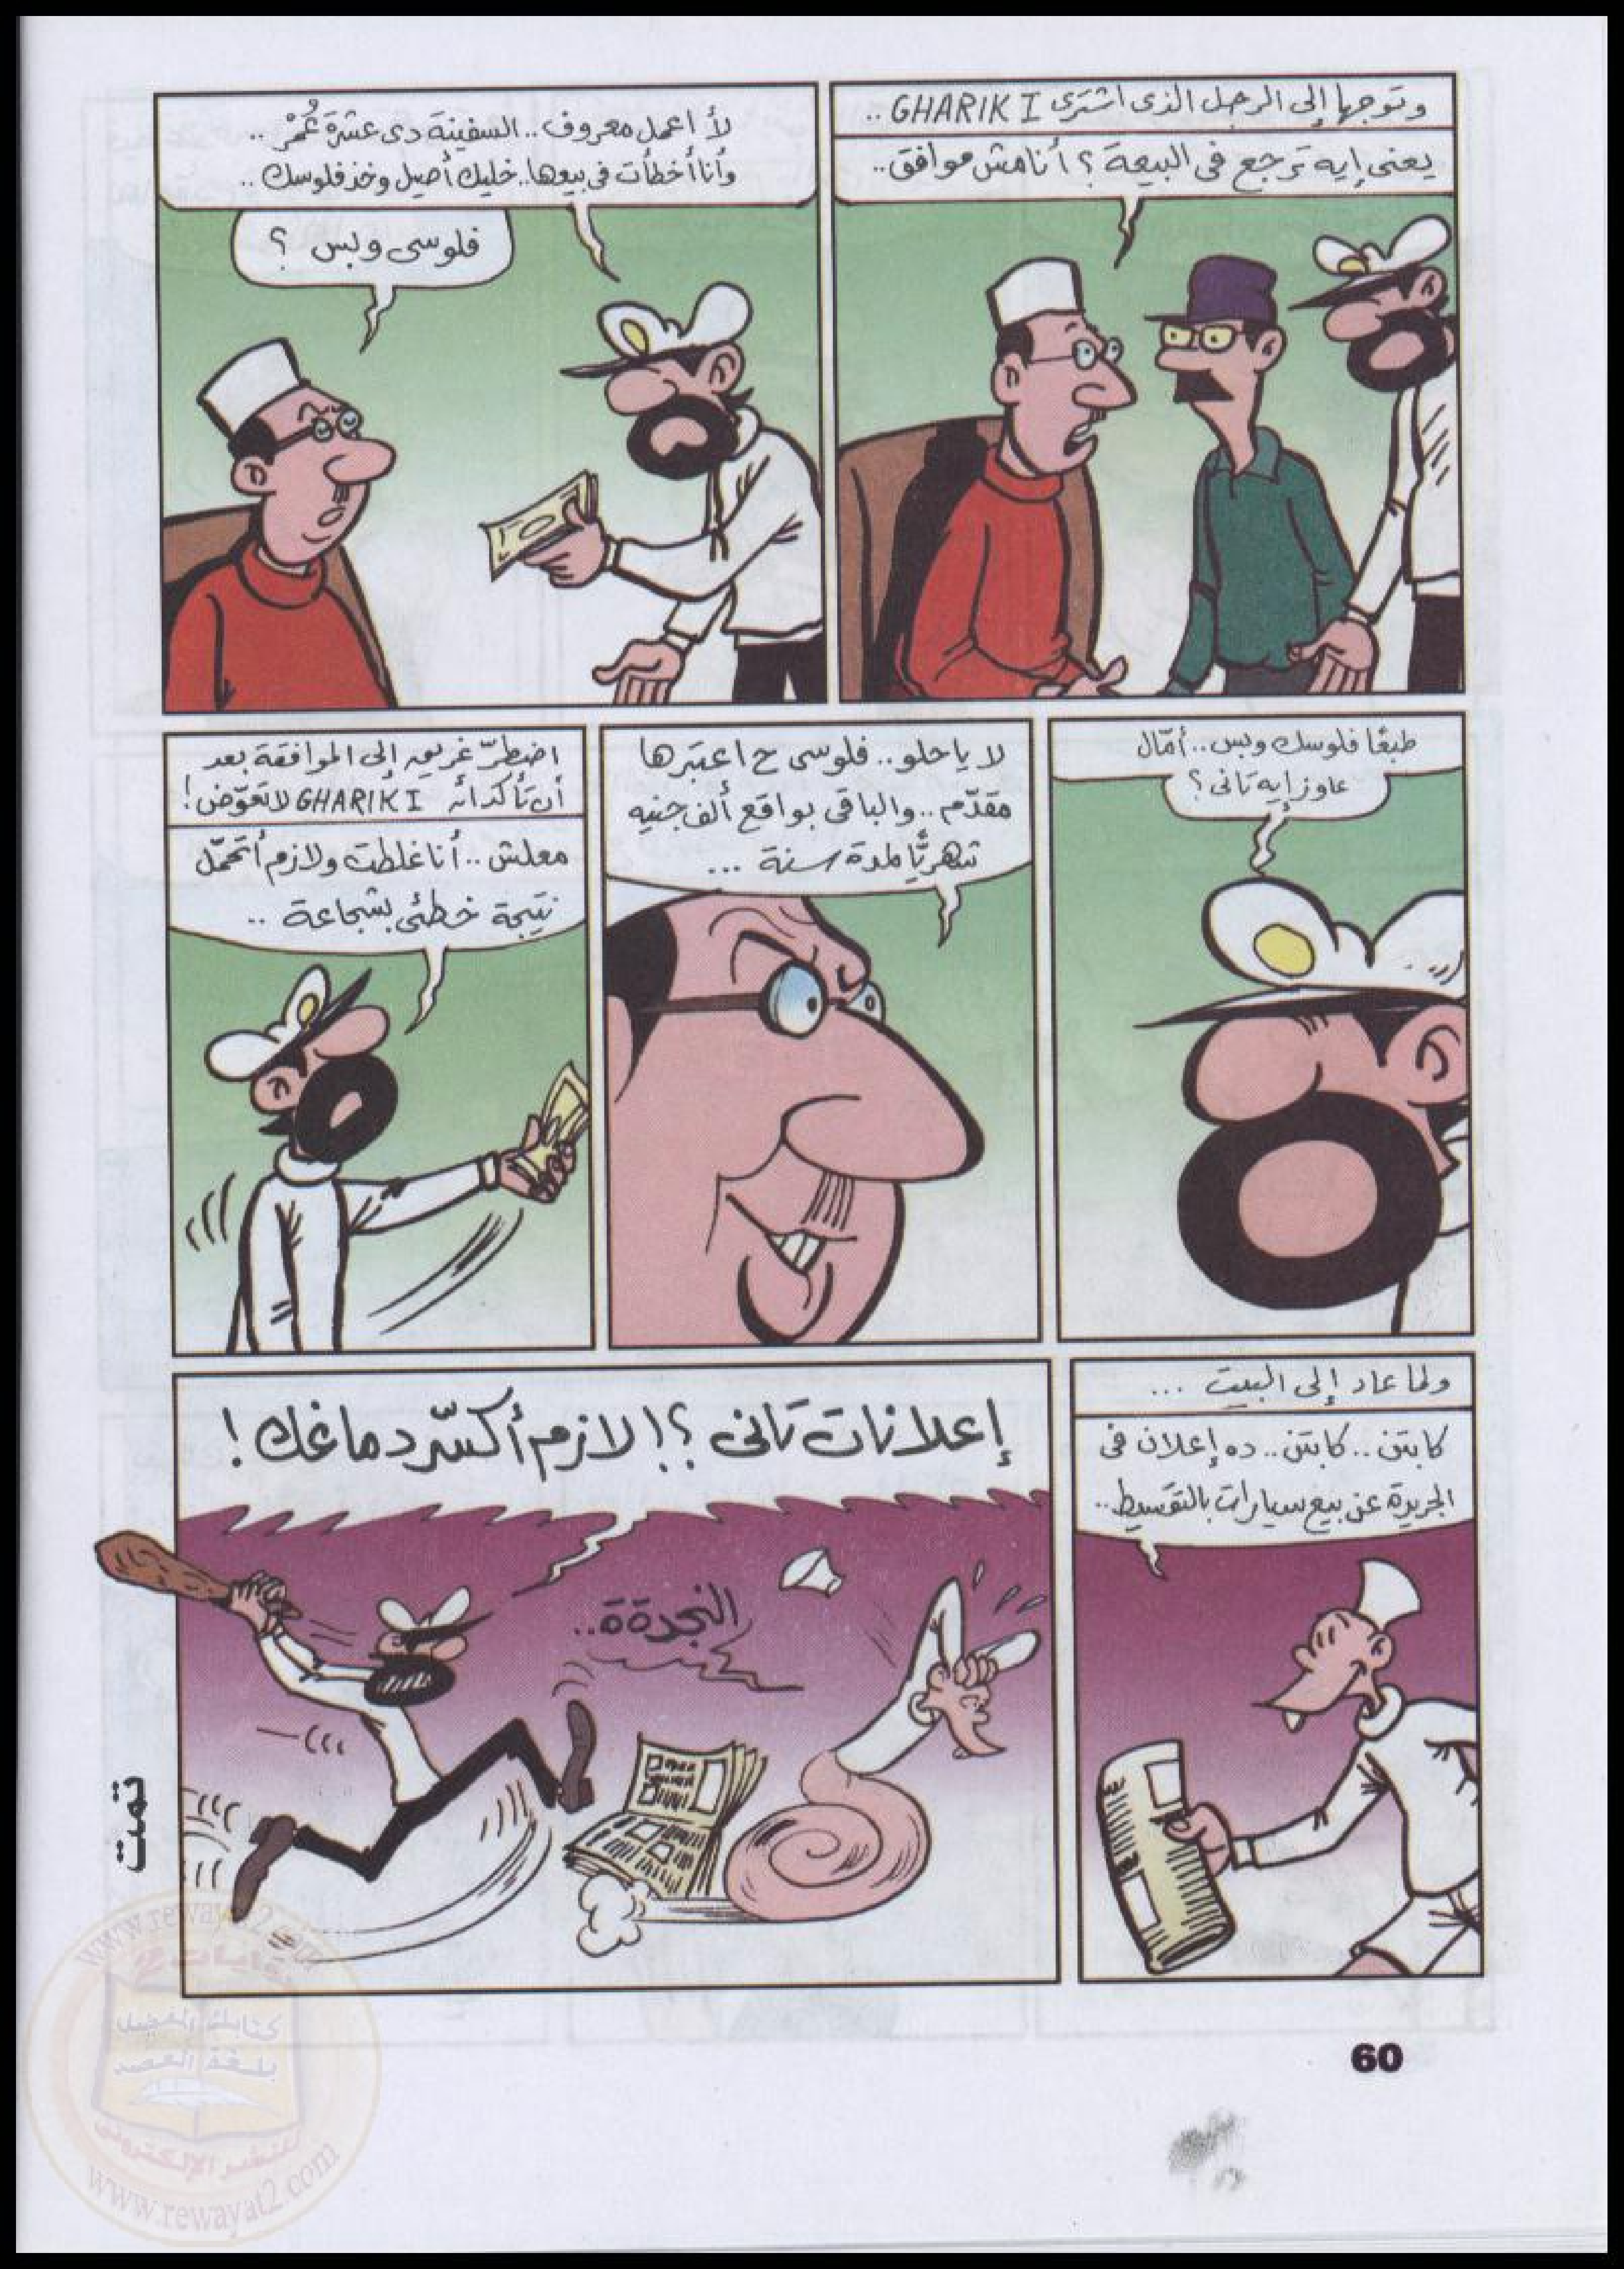 وتوجها إلى الرجل الذى اشترى GHARIK I ..
يعنى إيه ترجع فى البيعة ؟ أنا مش موافق..
لأ اعمل معروف.. السفينة دى عشرة عُمْر ..
وأنا أخطأت فى بيعها.. خليك أصيل وخذ فلوسك ..
فلوسى وبس ؟
طبعًا فلوسك وبس.. أمّال
عاوز إيه تانى ؟
لا يا حلو.. فلوسى ح اعتبرها
مقدّم .. والباقى بواقع ألف جنيه
شهريًّا لمدة سنة ...
اضطرّ غريق إلى الموافقة بعد
أن تأكد أن GHARIK I لا تعوّض !
معلش .. أنا غلطت ولازم أتحمّل
نتيجة خطئى بشجاعة ..
ولما عاد إلى البيت ...
كابتن .. كابتن .. ده إعلان فى
الجريدة عن بيع سيارات بالتقسيط..
إعلانات تانى ؟! لازم أكسّر دماغك !
النجدةةة..
تمت
60
www.rewayat2.com
روايات 2
كتابك المفضل
بلغة العصر
للنشر الإلكترونى
www.rewayat2.com